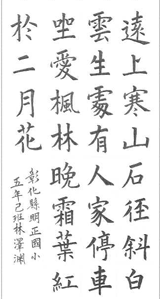 遠上寒山石徑斜白
雲生處有人家停車
坐愛楓林晚霜葉紅
於二月花
彰化縣明正國小
五年己班林澤淵